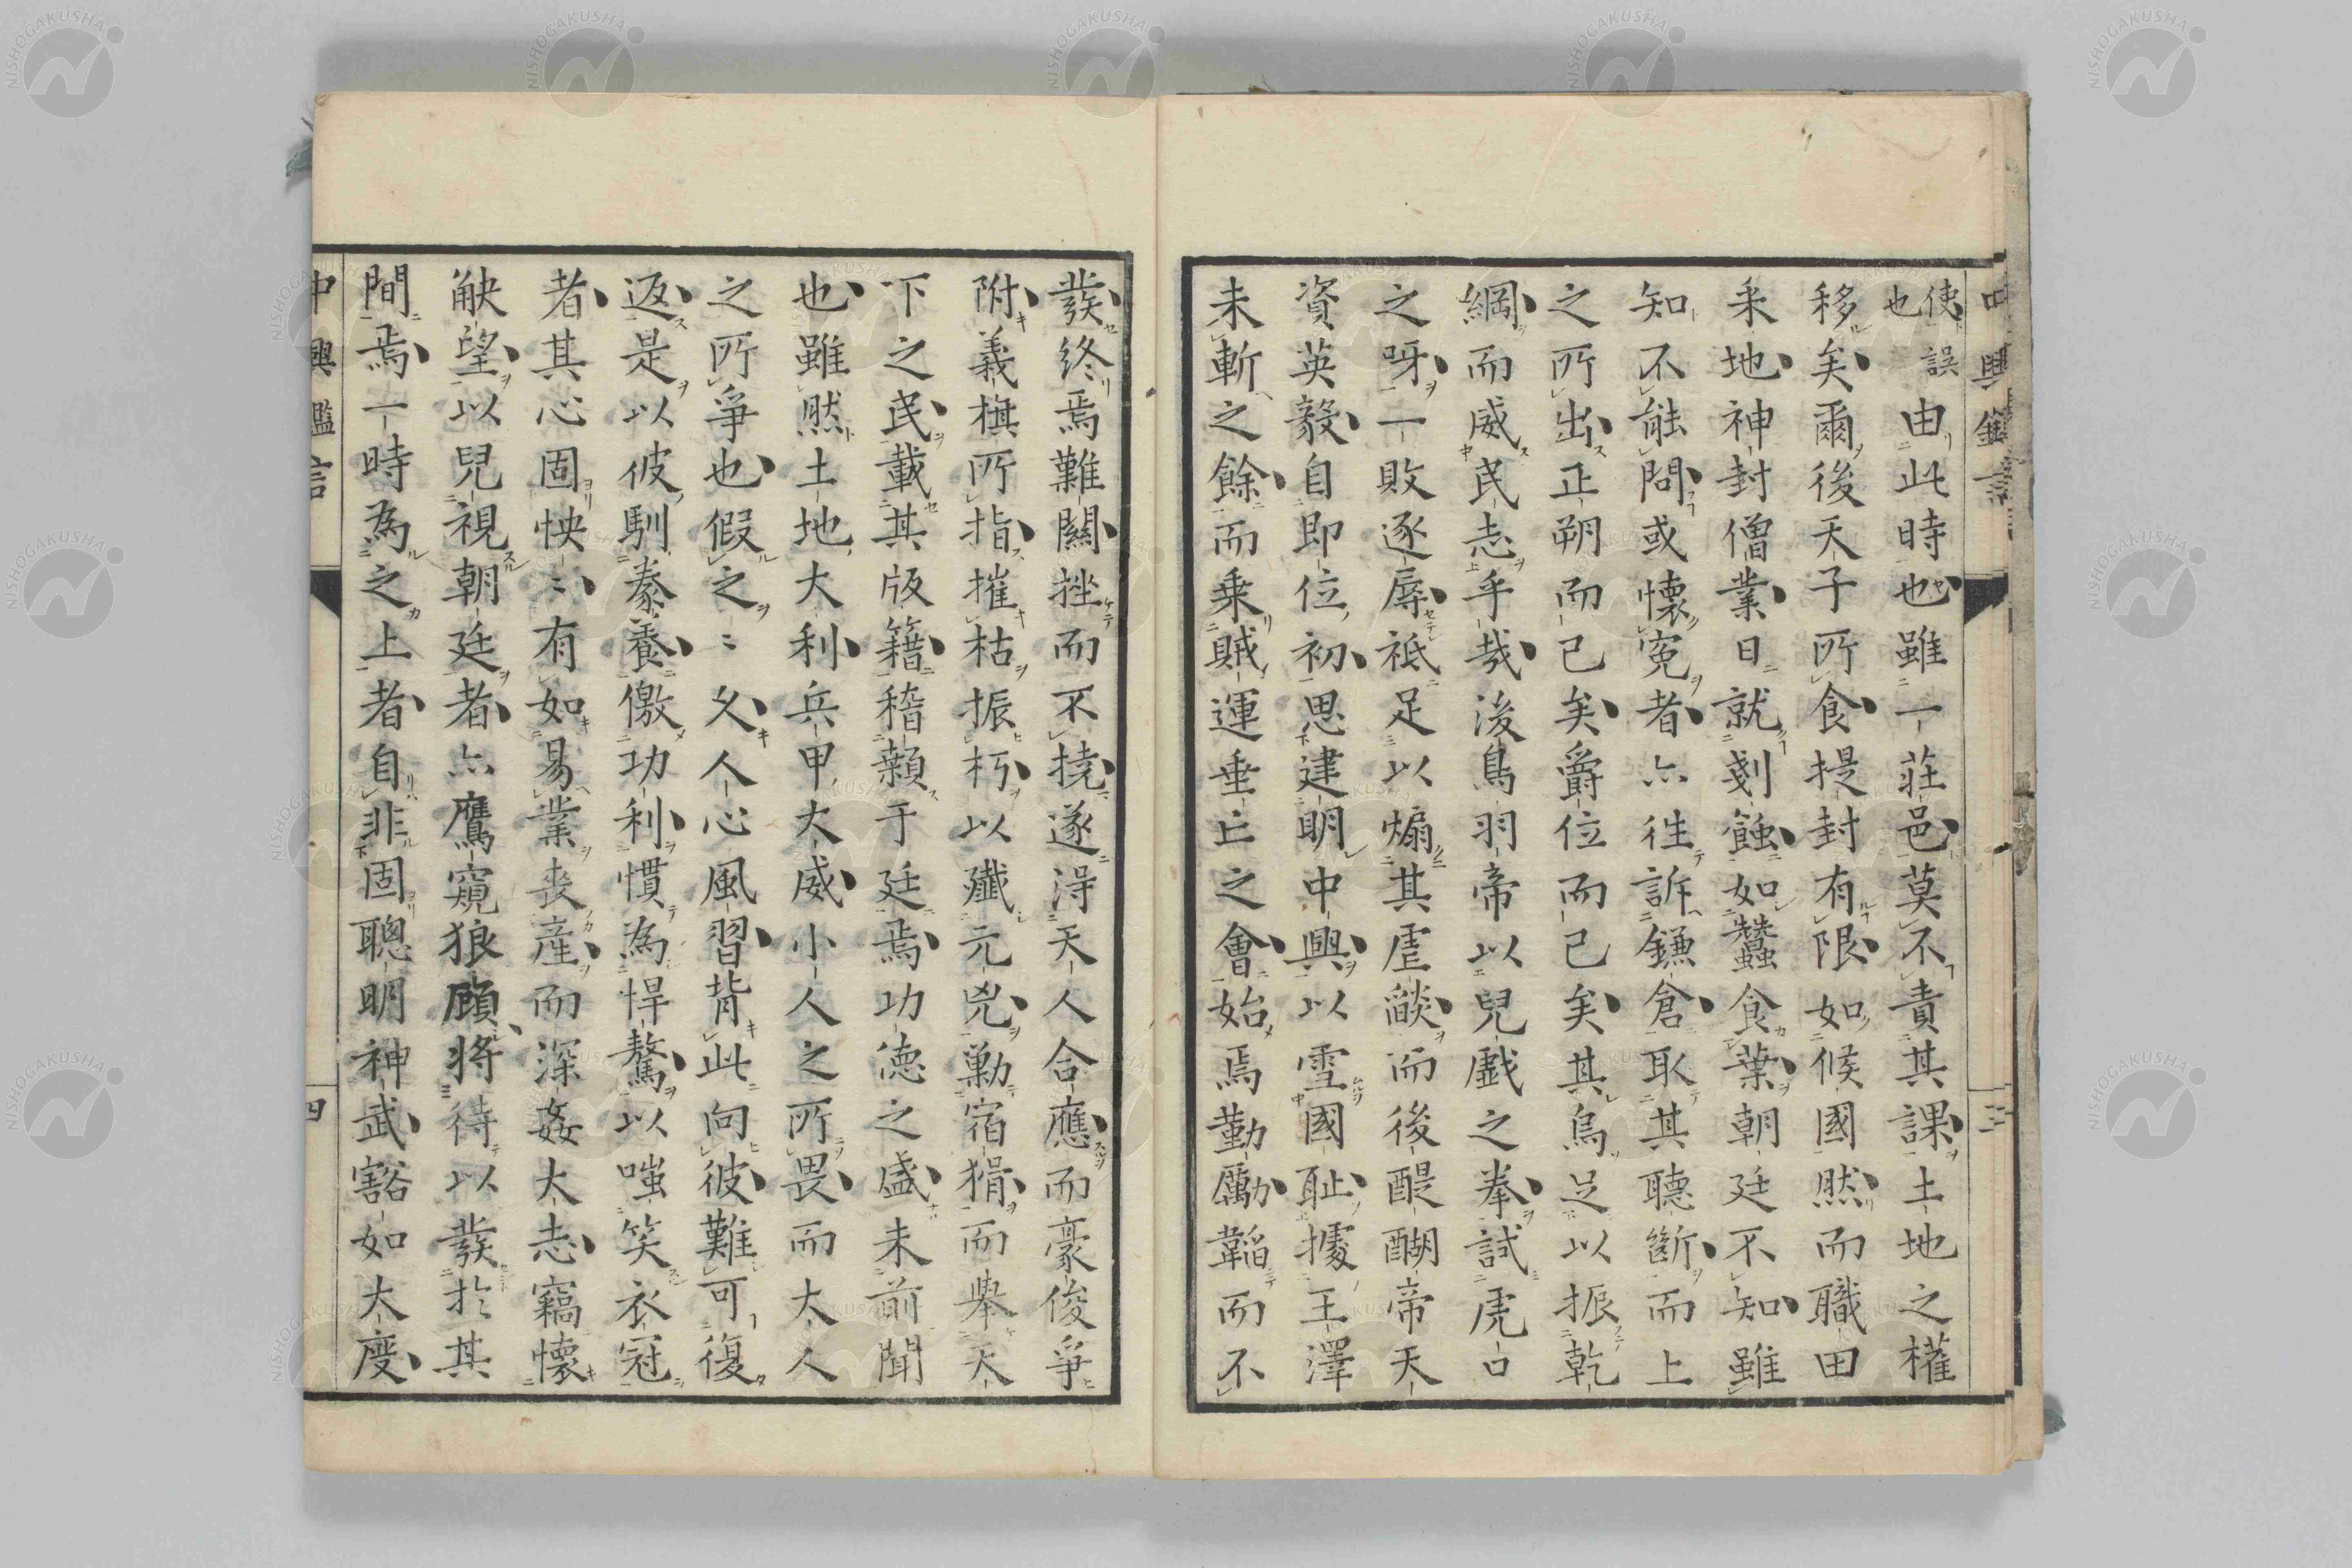 中興鑑言
三
使誤也由此時也雖一莊邑莫不責其課土地之權
移矣爾後天子所食提封有限如候國然而職田
采地神封僧業日就剗蝕如蠶食葉朝廷不知雖
知不能問或懷寃者亦徃訴鎌倉取其聽斷而上
之所出正朔而已矣爵位而已矣其烏足以振乾
綱而威民志乎哉後鳥羽帝以兒戲之拳試虎口
之呀一敗逐辱祇足以煽其虐燄而後醍醐帝天
資英毅自即位初思建明中興以雪國耻據王澤
未斬之餘而乗賊運垂亡之會始焉勤勵韜而不
發終焉難關挫而不撓遂得天人合應而豪俊爭
附義旗所指摧枯振朽以殲元兇勦宿猾而舉天
下之民載其版籍稽顙于廷焉功德之盛未前聞
也雖然土地大利兵甲大威小人之所畏而大人
之所爭也假之〻久人心風習背此向彼難可復
返是以彼馴豢養儌功利慣為悍驁以嗤笑衣冠
者其心固怏〻有如易業丧産而深姦大志竊懷
觖望以兒視朝廷者亦鷹窺狼顧將待以發於其
間焉一時為之上者自非固聰明神武豁如大度
中興鑑言
四